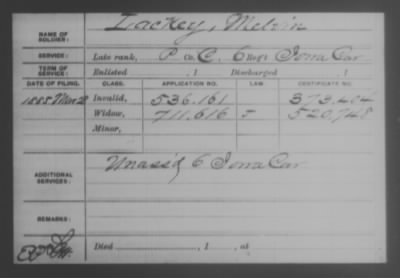 NAME OF SOLDIER: Lackey, Melvin
SERVICE: Late rank, P Co. C, 6 Reg't Iowa Cav
TERM OF SERVICE: Enlisted , 1 Discharged , 1
DATE OF FILING. CLASS. APPLICATION NO. LAW. CERTIFICATE NO.
1885 Mar Invalid, 536.161 373.404
Widow, 711.616 520.748
Minor,
ADDITIONAL SERVICES: Unass'd 6 Iowa Cav
REMARKS:
Died , 1 , at